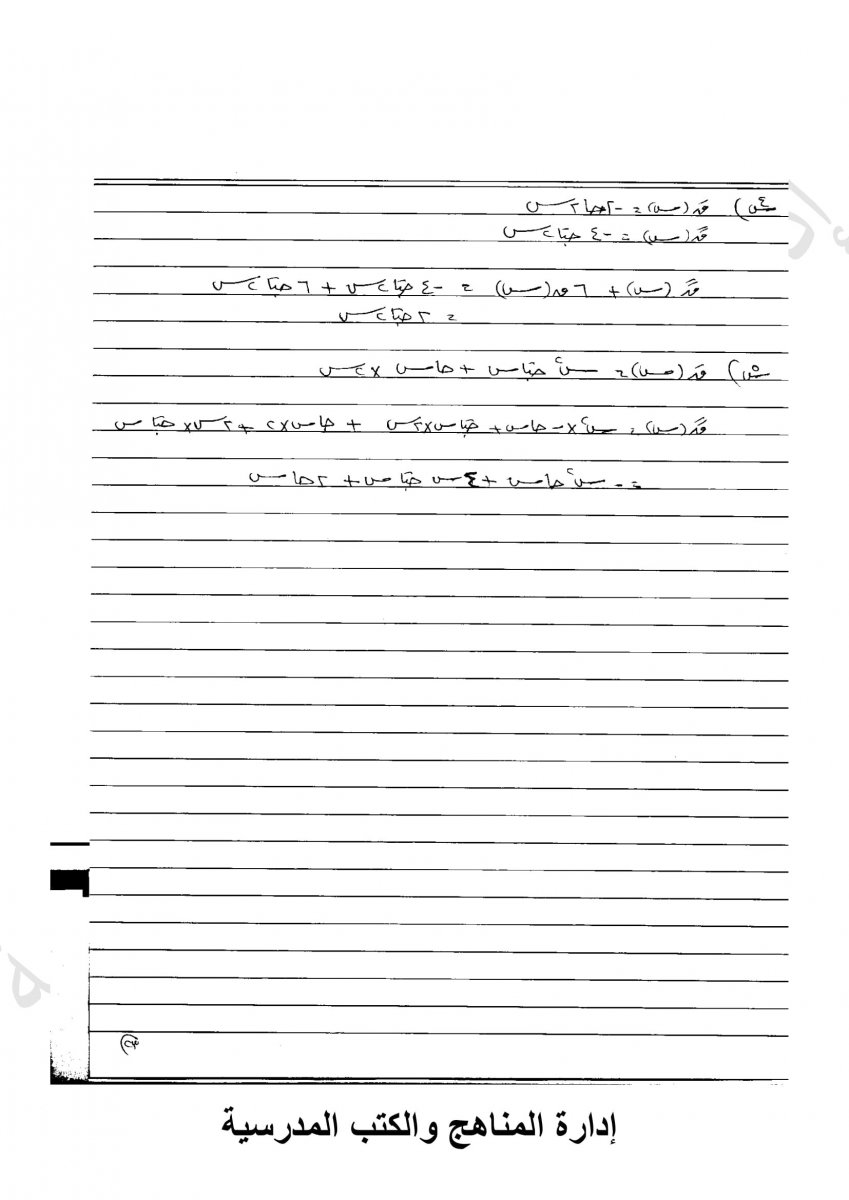 س٤) قَ(س) = -٢جا٢س
قً(س) = -٤ جتا٢س
قً(س) + ٦ق(س) = -٤ جتا٢س + ٦ جتا٢س
= ٢ جتا٢س
س٥) قَ(س) = س٢ جتاس + جاس × ٢س
قً(س) = س٢ × -جاس + جتاس × ٢س + جاس × ٢ + ٢س × جتاس
= -س٢ جاس + ٤س جتاس + ٢جاس
إدارة المناهج والكتب المدرسية